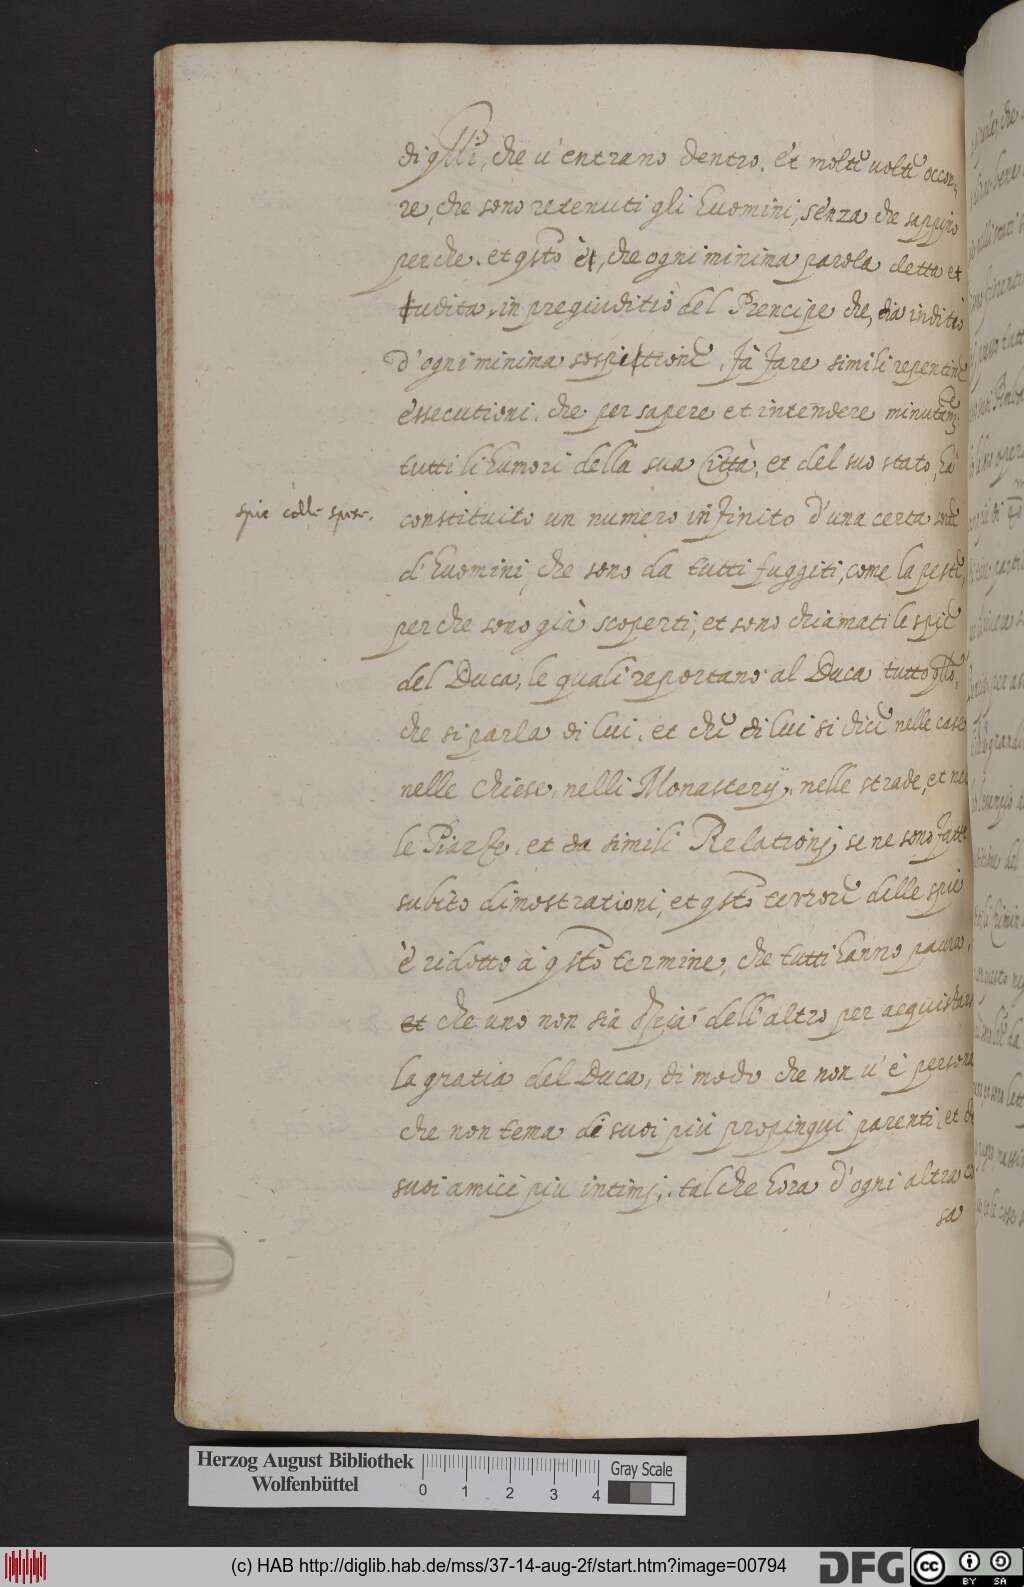 di q̃lli, che u'entrano dentro. et molte uolte occor,
re, che sono retenuti gli huomini, senza che sappino
perche. et q̃sto è, che ogni minima parola detta et
udita, in pregiuditio del Prencipe che, dia inditio
d'ogni minima sospittione. fà fare simili repentine
essecutioni. che per sapere et intendere minutam:
tutti li humori della sua Città, et del suo stato, hà
spie colle spese.
constituito un numero infinito d'una certa sorte
d'huomini, che sono da tutti fuggiti, come la peste,
perche sono già scoperti, et sono chiamati le spie
del Duca, le quali reportano al Duca tutto q̃llo,
che si parla di lui. et che di lui si dice nelle case
nelle chiese. nelli Monasterÿ. nelle strade, et nel
le Piazze. et da simili Relationj se ne sono fatte
subito dimostrationi, et q̃sto terrore delle spie
è ridotto à q̃sto termine, che tutti hanno paura,
et che uno non sia spia dell'altro per acquistare
la gratia del Duca, di modo che non u'è persona
che non tema de suoi più propinqui parenti. et de
suoi amici piu intimj. talche hora d'ogni altra co
sa
Herzog August Bibliothek
Wolfenbüttel
0 1 2 3 4
Gray Scale
(c) HAB http://diglib.hab.de/mss/37-14-aug-2f/start.htm?image=00794
DFG
cc BY SA